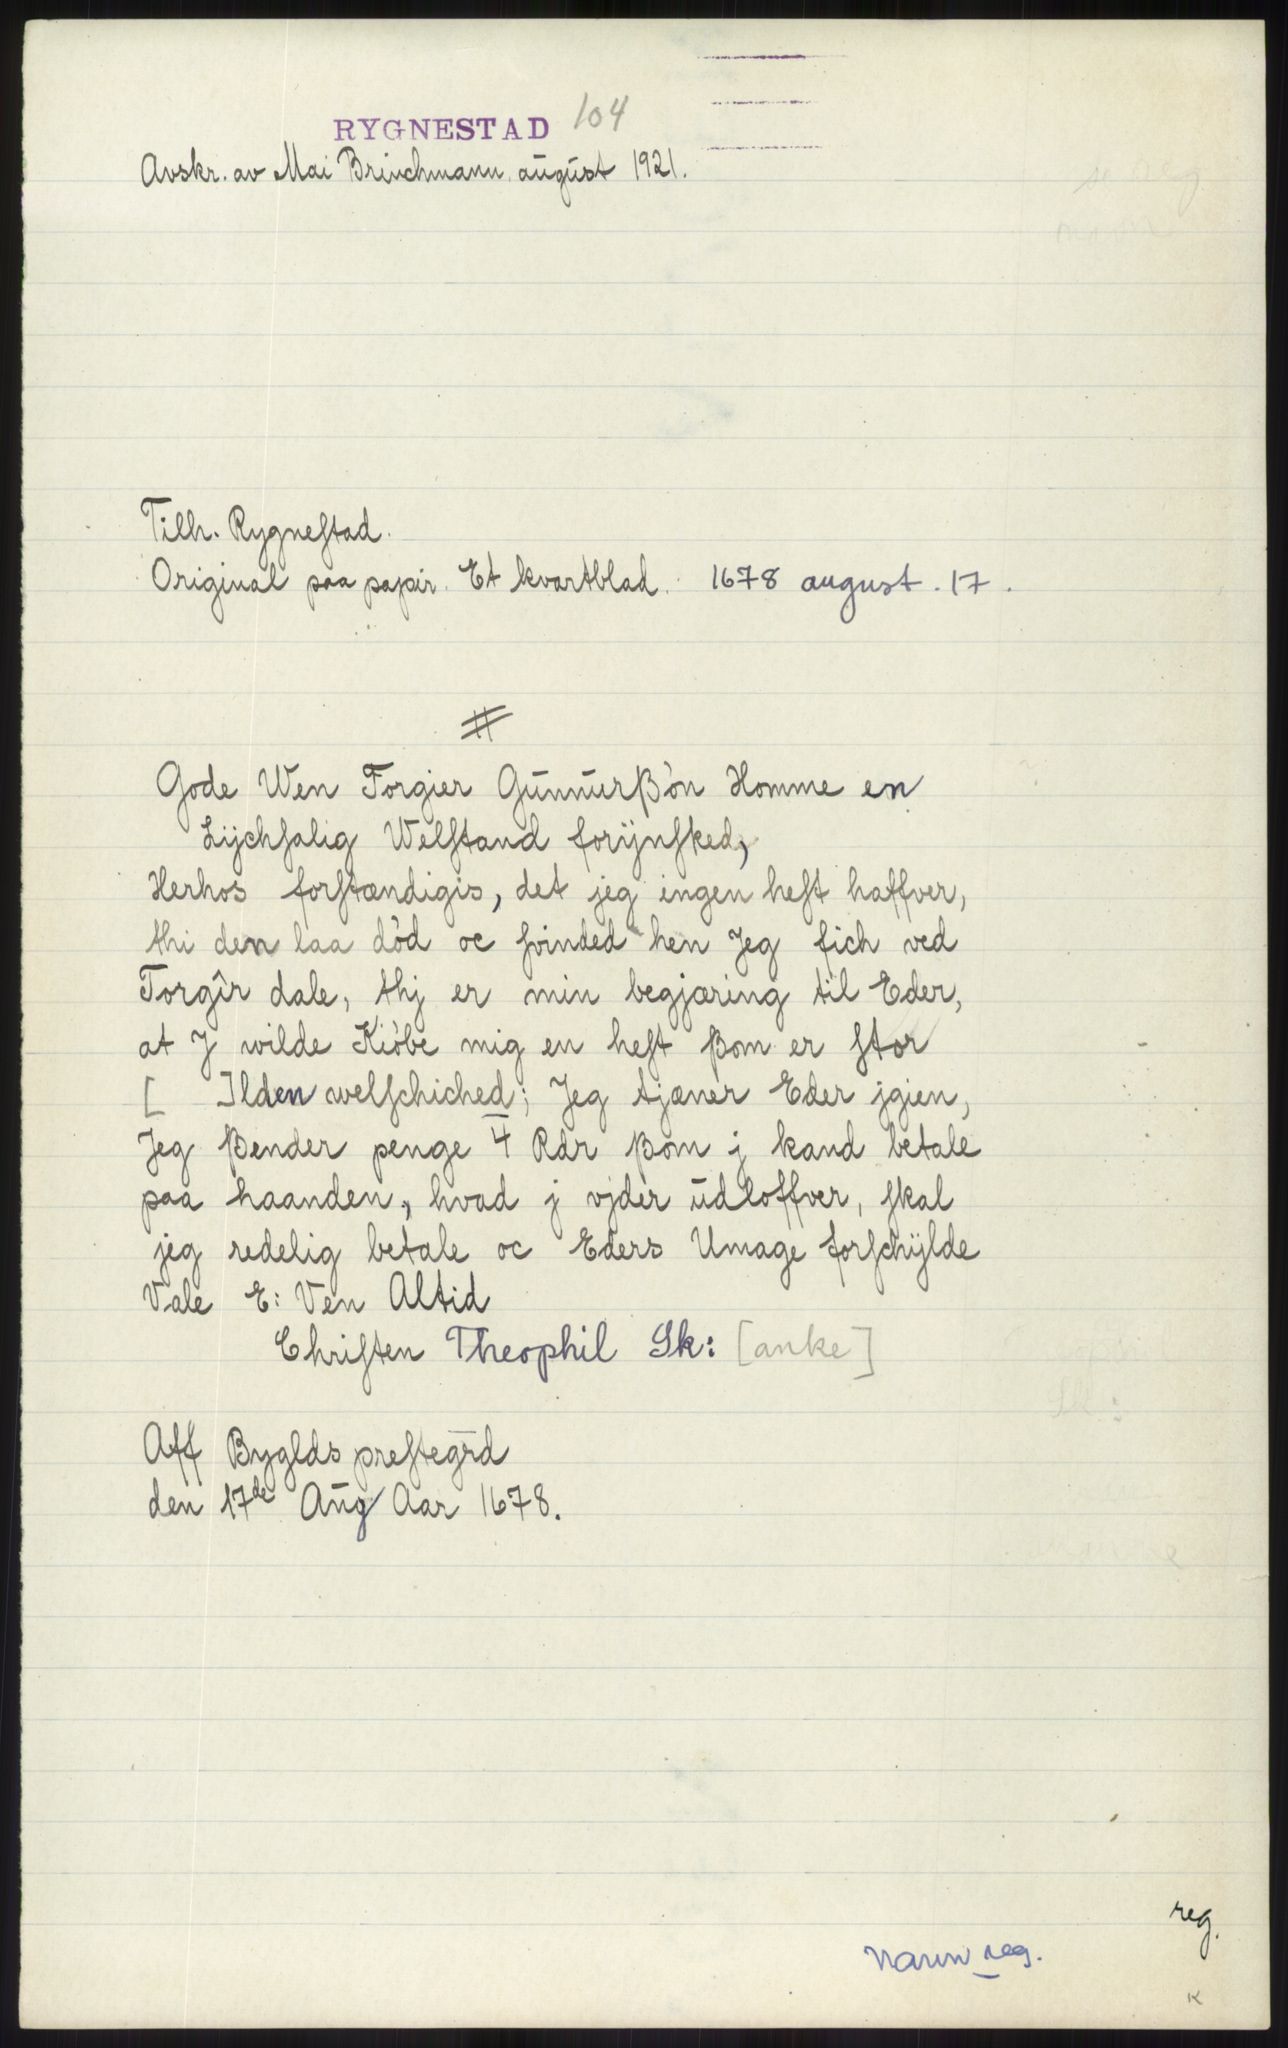 RYGNESTAD 104
Avskr. av Mai Brinchmann. august 1921.
Tilh. Rygnestad.
Original paa papir. Et kvartblad. 1678 august. 17.
#
Gode Wen Torgier Gunnurßòn Homme en
Lychsalig Welstand forÿnsked,
Herhos forstændigis, det jeg ingen hest haffver,
thi den laa död oc svinded hen Jeg fich ved
Torgîr dale, thj er min begjæring til Eder,
at J wilde Kiöbe mig en hest ßom er stor
[ ]lden welschiched; Jeg tjæner Eder jgien,
Jeg ßender penge 4 Rdr ßom j kand betale
paa haanden, hvad j vjder udloffver, skal
jeg redelig betale oc Eders Umage forschÿlde
Vale E: Ven Altid
Christen Theophil Sk: [anke]
Aff Byglds prestegrd
den 17de Aug Aar 1678.
reg.
navn reg.
K